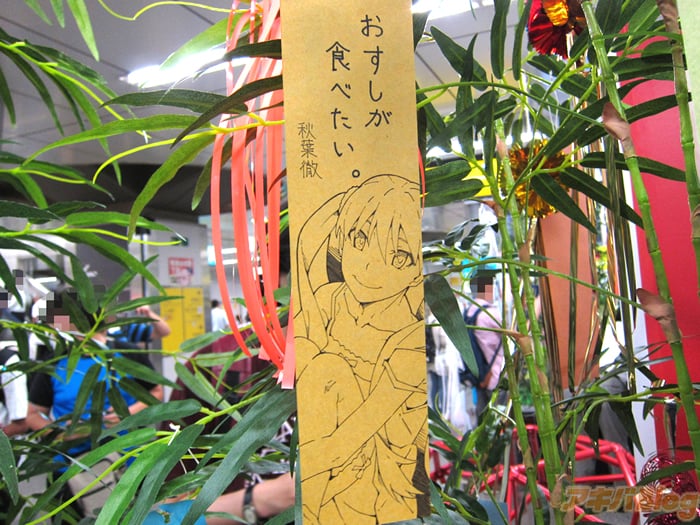 おすしが
食べたい。
秋葉徹
アキバBlog